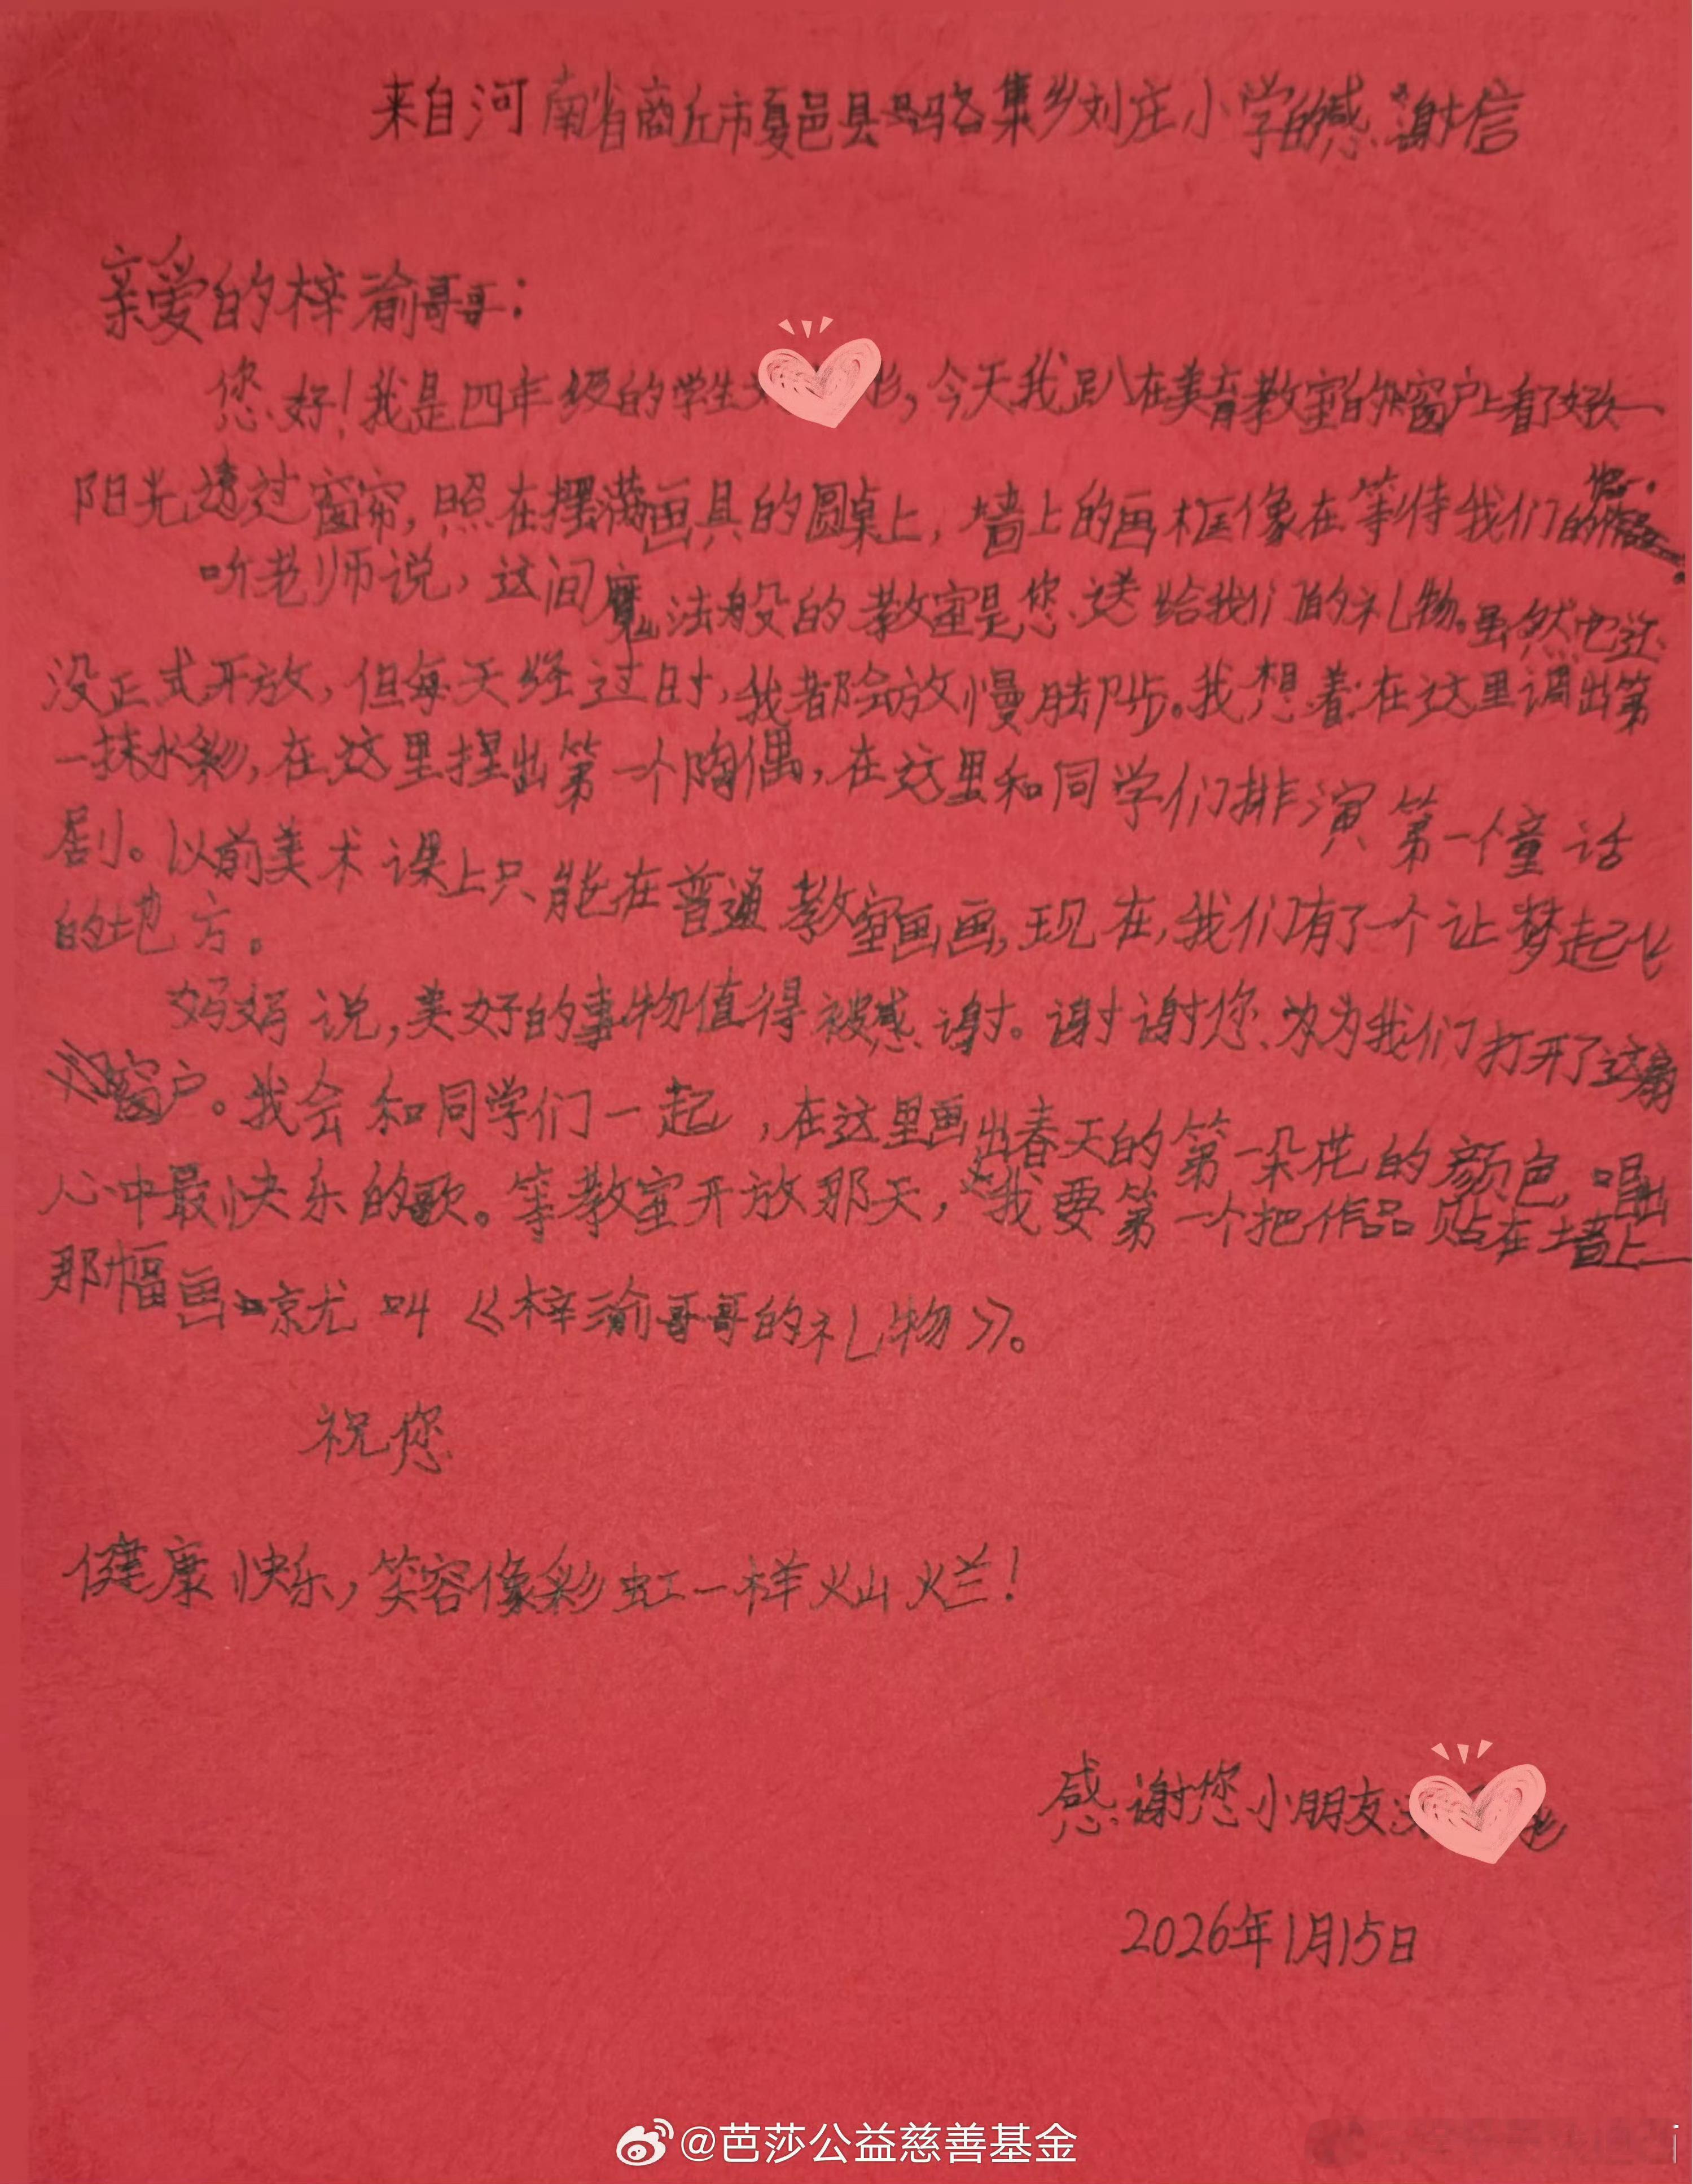 来自河南省商丘市夏邑县骆集乡刘庄小学的感谢信
亲爱的梓渝哥哥：
您好！我是四年级的学生，今天我趴在美育教室的窗户上看了好久
阳光透过窗帘，照在摆满画具的圆桌上，墙上的画框像在等待我们的作品。
听老师说，这间魔法般的教室是您送给我们的礼物。虽然它还
没正式开放，但每天经过时，我都会放慢脚步。我想着在这里调出第
一抹水彩，在这里捏出第一个陶偶，在这里和同学们排演第一个童话
剧。以前美术课上只能在普通教室画画，现在，我们有了一个让梦起飞
的地方。
妈妈说，美好的事物值得被感谢。谢谢您为我们打开了这扇
窗户。我会和同学们一起，在这里画出春天的第一朵花的颜色，唱出
心中最快乐的歌。等教室开放那天，我要第一个把作品贴在墙上
那幅画就叫《梓渝哥哥的礼物》。
祝您
健康快乐，笑容像彩虹一样灿烂！
感谢您小朋友
2026年1月15日
@芭莎公益慈善基金